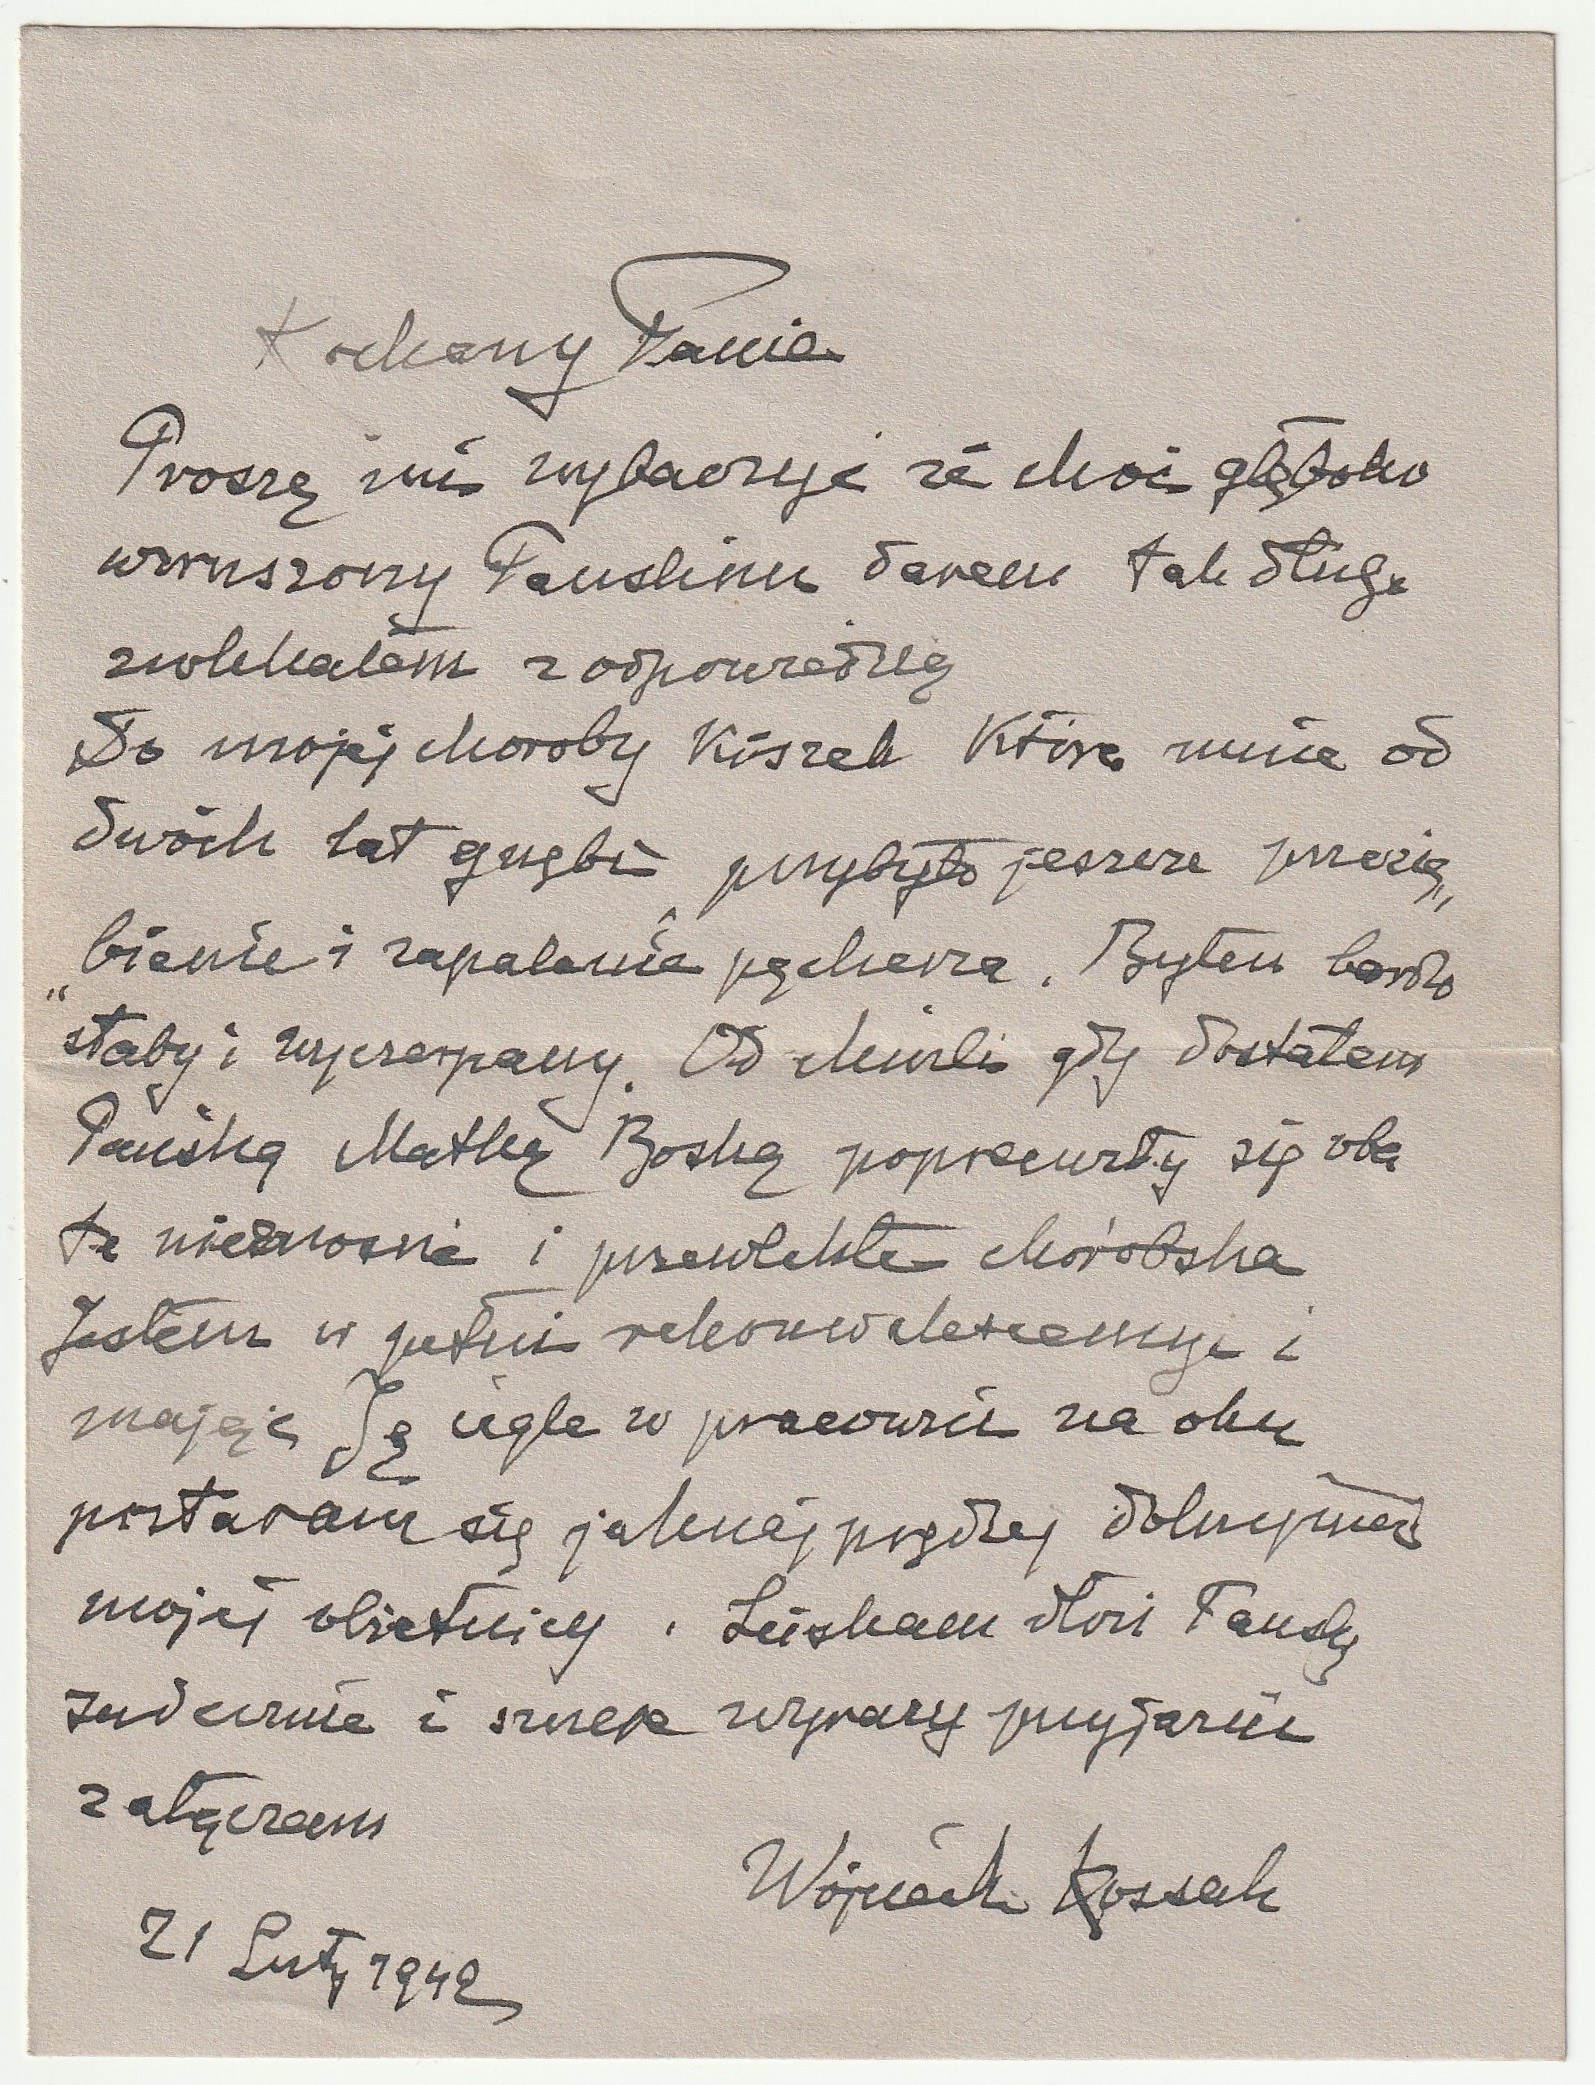 Kochany Panie
Proszę mi wybaczyć że choć głęboko
wzruszony Pańskim darem tak długo
zwlekałem z odpowiedzią
Do mojej choroby kiszek która mnie od
dwóch lat gnębi przybyło jeszcze przezię„
„bienie i zapalenie pęcherza. Byłem bardzo
słaby i wyczerpany. Od chwili gdy dostałem
Pańską Matkę Boską poprawiły się oba
te nieznośne i przewlekłe choróbska
Jestem w pełni rekonwalescencyi i
mając Ją ciągle w pracowni na oku
postaram się jaknajprędzej dotrzymać
mojej obietnicy. Ściskam dłoń Pańską
serdecznie i szczere wyrazy przyjaźni
załączam
Wojciech Kossak
21 Luty 1942